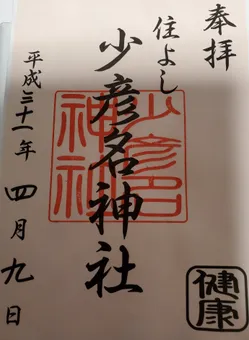 奉拝
住よし
少彦名神社
少彦名
神社
平成三十一年
四月九日
健康